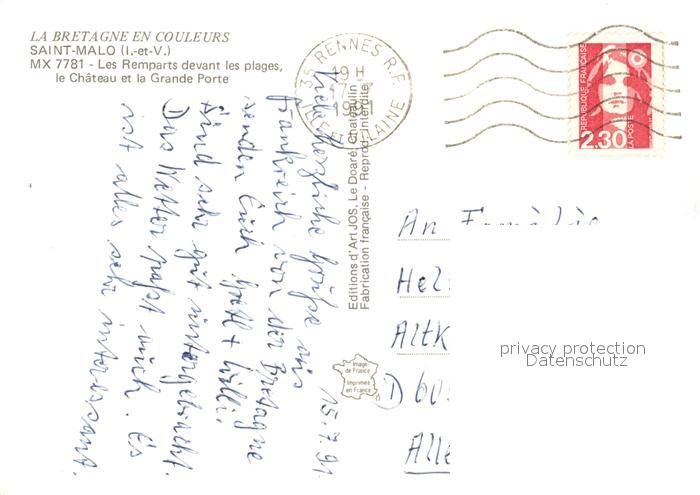 LA BRETAGNE EN COULEURS
SAINT-MALO (I.-et-V.)
MX 7781 - Les Remparts devant les plages,
le Château et la Grande Porte
35 RENNES R.P.
19 H
ILLE ET VILAINE
REPUBLIQUE FRANÇAISE
2,30
LA POSTE
Editions d'Art JOS, Le Doaré, Châteaulin
Fabrication française - Reprod. interdite
Image
de France
Imprimée
en France
15.7.91
Viele herzliche Grüße aus
Frankreich von der Bretagne
senden Euch + Willi.
Sind sehr gut untergebracht.
Das Wetter paßt auch. Es
ist alles sehr interessant.
An
Hel
Altk
D 60
Alle
privacy protection
Datenschutz